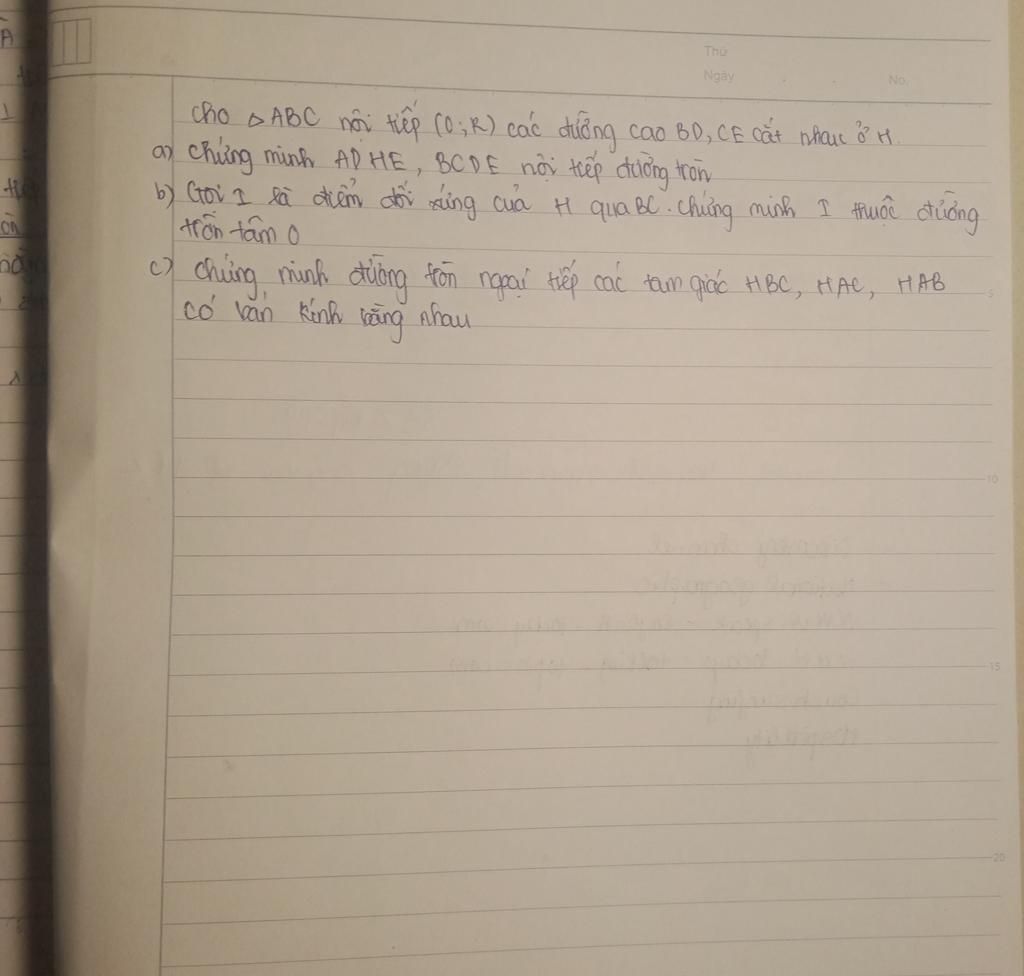 Thứ
Ngày No.
Cho △ABC nội tiếp (O;R) các đường cao BD, CE cắt nhau ở H.
a) Chứng minh ADHE, BCDE nội tiếp đường tròn
b) Gọi I là điểm đối xứng của H qua BC. Chứng minh I thuộc đường
tròn tâm O
c) Chứng minh đường tròn ngoại tiếp các tam giác HBC, HAC, HAB
5
có bán kính bằng nhau
10
15
20